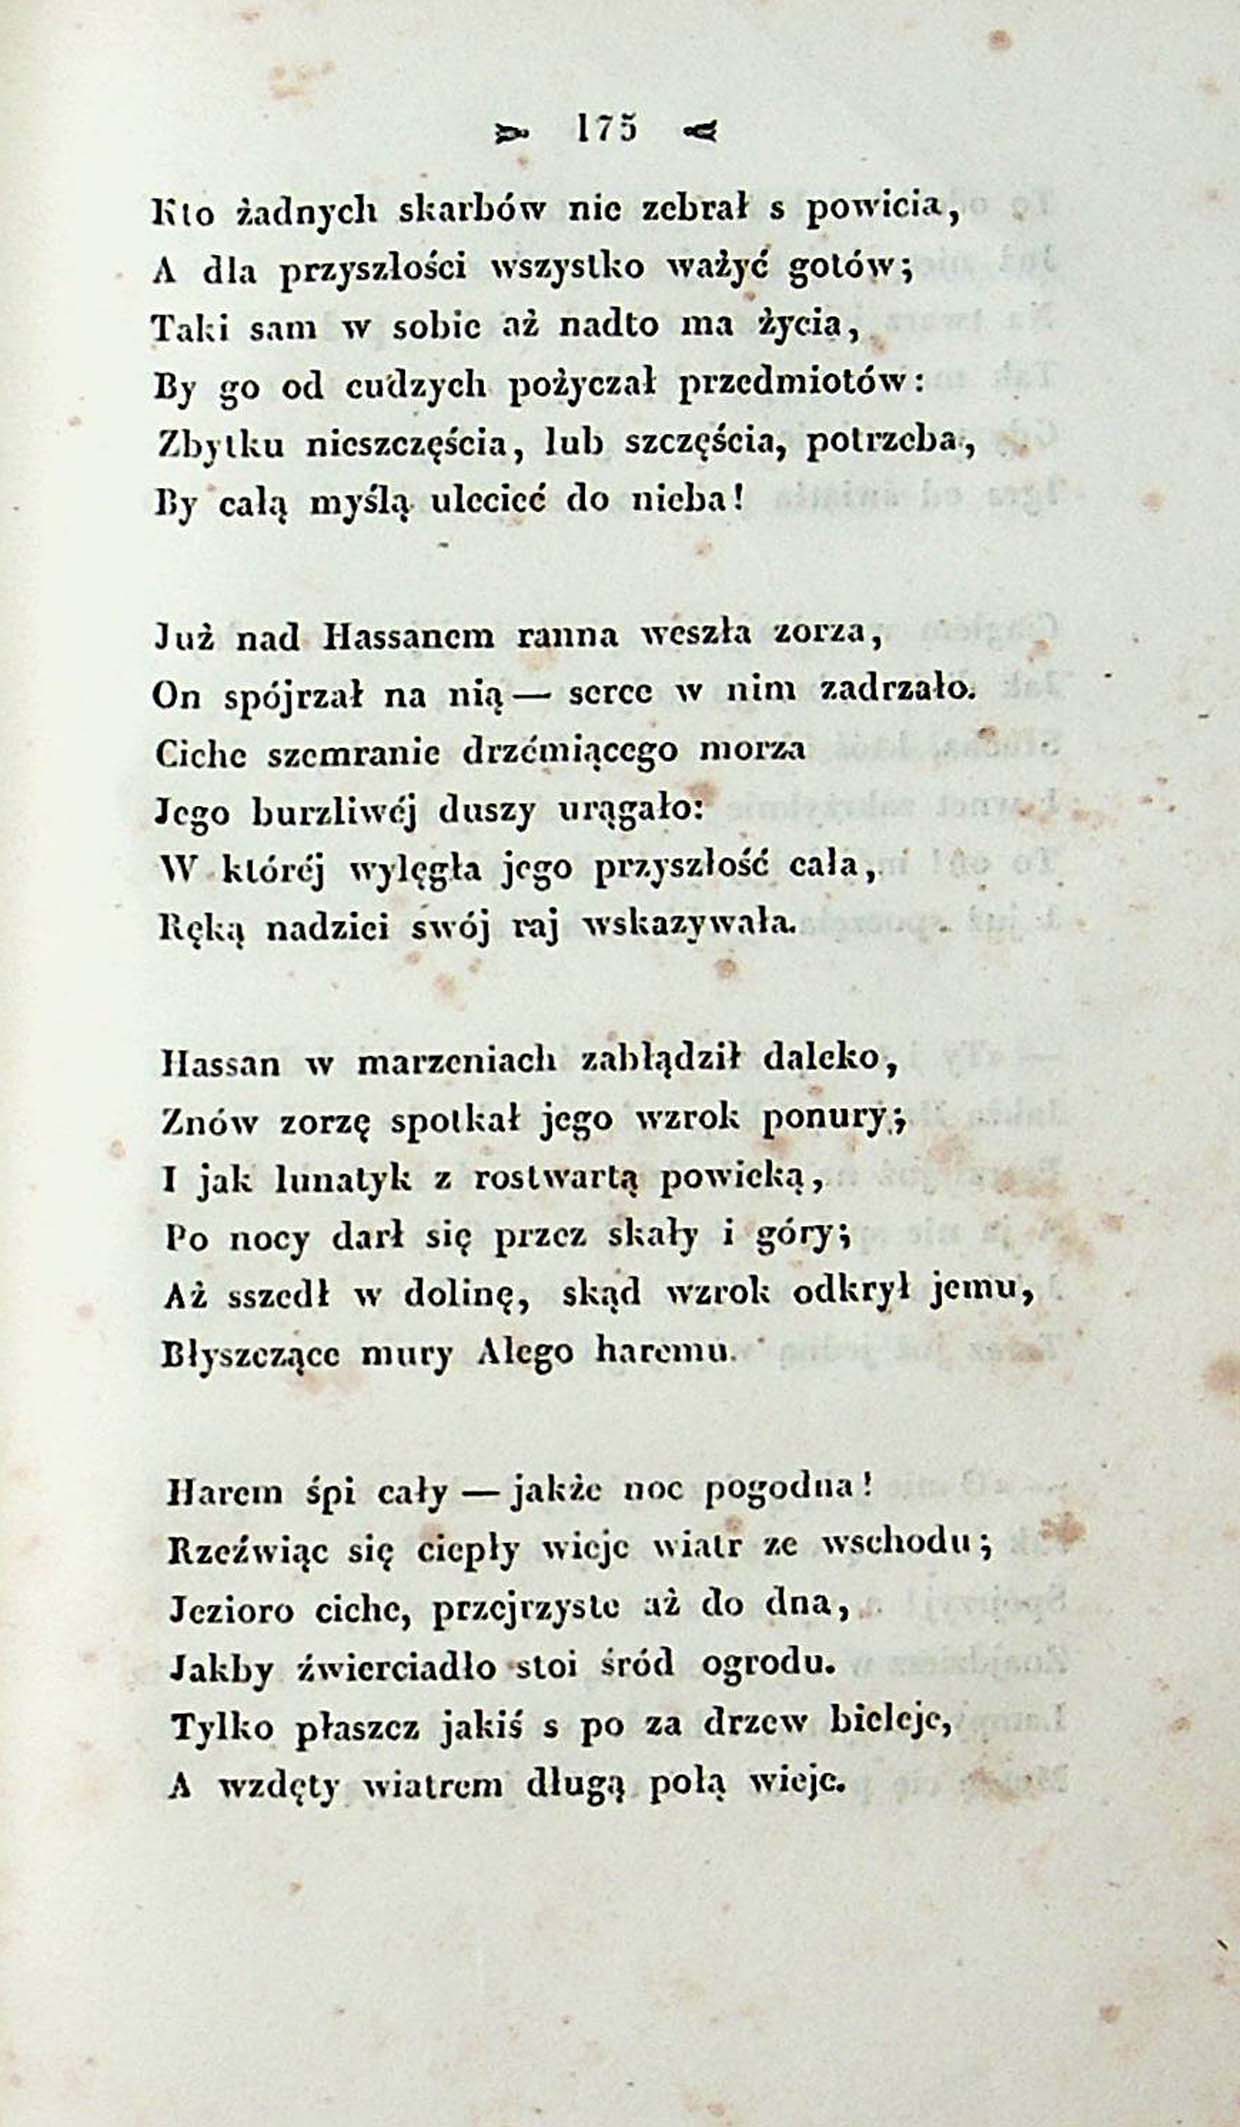 175
Kto żadnych skarbów nie zebrał s powicia,
A dla przyszłości wszystko ważyć gotów;
Taki sam w sobie aż nadto ma życia,
By go od cudzych pożyczał przedmiotów:
Zbytku nieszczęścia, lub szczęścia, potrzeba,
By całą myślą ulecieć do nieba!
Już nad Hassanem ranna weszła zorza,
On spójrzał na nią — serce w nim zadrzało.
Ciche szemranie drzémiącego morza
Jego burzliwéj duszy urągało:
W któréj wylęgła jego przyszłość cała,
Ręką nadziei swój raj wskazywała.
Hassan w marzeniach zabłądził daleko,
Znów zorzę spotkał jego wzrok ponury;
I jak lunatyk z rostwartą powieką,
Po nocy darł się przez skały i góry;
Aż sszedł w dolinę, skąd wzrok odkrył jemu,
Błyszczące mury Alego haremu.
Harem śpi cały — jakże noc pogodna!
Rzeźwiąc się ciepły wieje wiatr ze wschodu;
Jezioro ciche, przejrzyste aż do dna,
Jakby źwierciadło stoi śród ogrodu.
Tylko płaszcz jakiś s po za drzew bieleje,
A wzdęty wiatrem długą połą wieje.